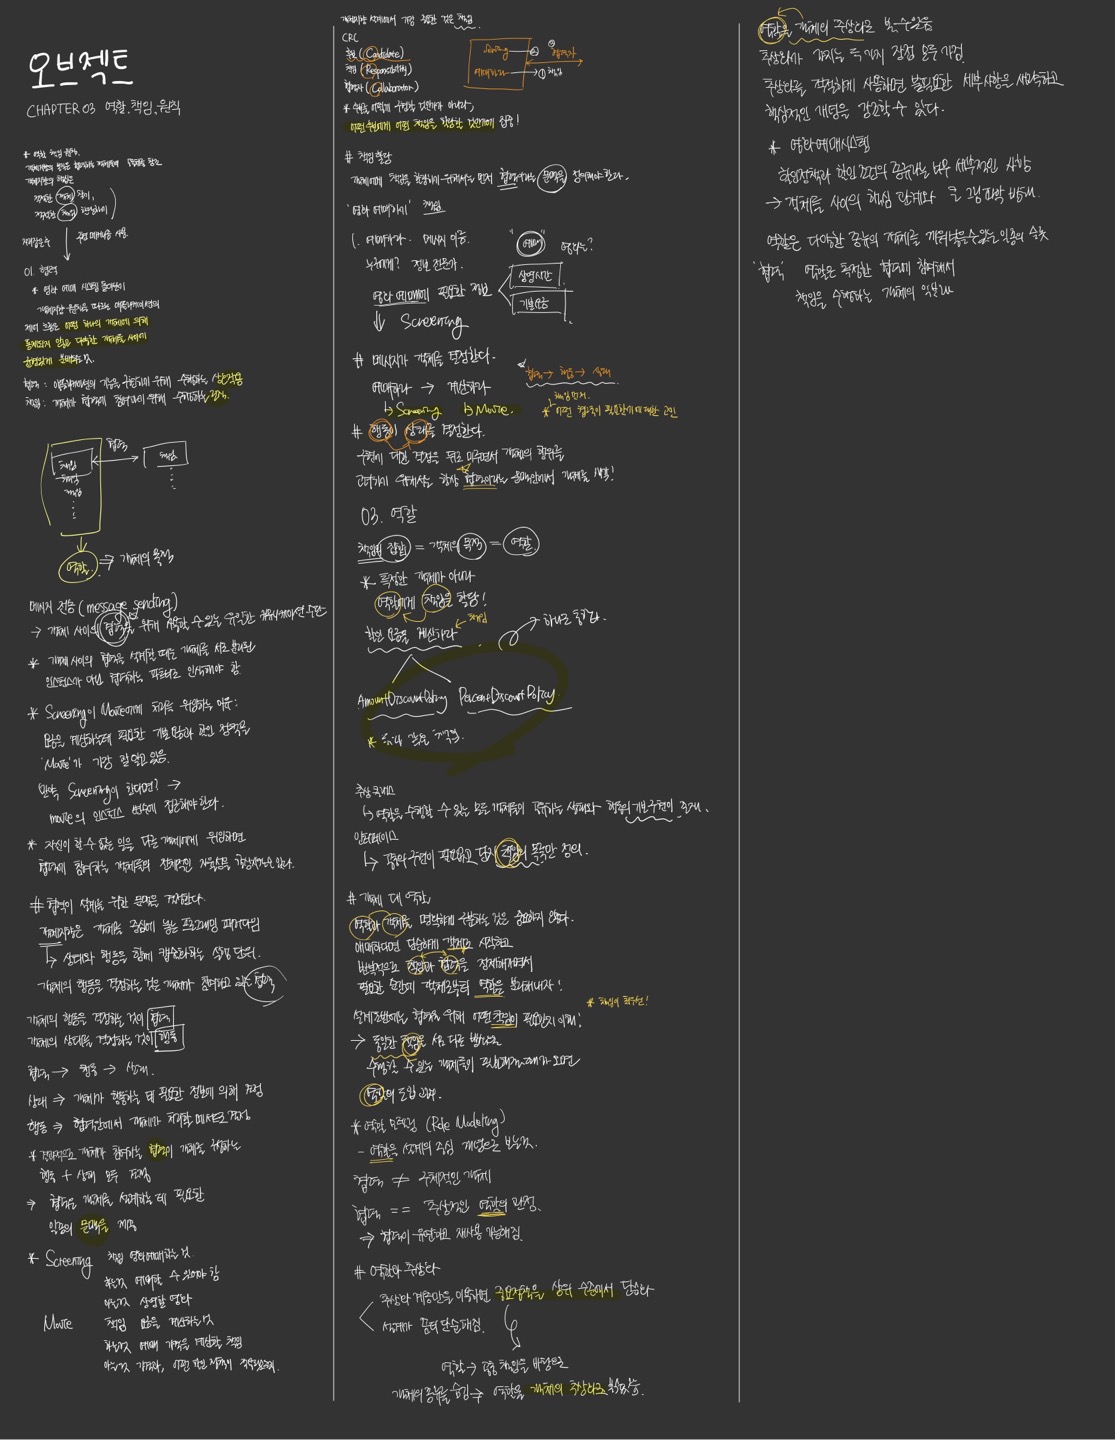 오브젝트
CHAPTER 03 역할. 책임. 원칙
* 역할 책임 협력.
적절한 객체 찾아,
적절한 책임 할당하여
01 협력
* 영화 예매 시스템 돌아보기
객체지향 원칙을 따르는 애플리케이션의
제어 흐름은 어떤 하나의 객체에 의해
통제되지 않고 다양한 객체들 사이에
균형있게 분배되는 것.
협력 : 애플리케이션의 기능을 구현하기 위해 수행하는 상호작용
책임 : 객체가 협력에 참여하기 위해 수행하는 로직.
협력
책임
책임
책임
책임
역할 ⇒ 객체의 목적
메시지 전송 (message sending)
→ 객체 사이의 협력을 위해 사용할 수 있는 유일한 커뮤니케이션 수단
* 객체 사이의 협력을 설계할 때는 객체를 서로 분리된
인스턴스가 아닌 협력하는 파트너로 인식해야 함.
* Screening이 Movie에게 처리를 위임하는 이유:
요금을 계산하는데 필요한 기본 요금과 할인 정책을
'Movie'가 가장 잘 알고 있음.
만약 Screening이 한다면? →
movie의 인스턴스 변수에 접근해야 한다.
* 자신이 할 수 없는 일을 다른 객체에게 위임하면
협력에 참여하는 객체들의 전체적인 자율성을 향상시킬 수 있다.
# 협력이 설계를 위한 문맥을 결정한다.
객체지향은 객체를 중심에 놓는 프로그래밍 패러다임
↳ 상태와 행동을 함께 캡슐화하는 실행 단위.
객체의 행동을 결정하는 것은 객체가 참여하고 있는 협력
객체의 행동을 결정하는 것이 협력
객체의 상태를 결정하는 것이 행동
협력 → 행동 → 상태.
상태 ⇒ 객체가 행동하는 데 필요한 정보에 의해 결정
행동 ⇒ 협력 안에서 객체가 처리할 메시지로 결정
* 결과적으로 객체가 참여하는 협력이 객체를 구성하는
행동 + 상태 모두 결정
⇒ 협력은 객체를 설계하는 데 필요한
일종의 문맥을 제공
* Screening 책임 영화 예매하는 것.
하는 것 예매할 수 있어야 함
아는 것 상영할 영화
Movie 책임 요금을 계산하는 것
하는 것 예매 가격을 계산할 책임
객체지향 설계에서 가장 중요한 것은 책임
CRC
후보 (Candidate)
책임 (Responsibility)
협력자 (Collaborator)
Screening
예매하라
② 협력자
① 책임
어떤 후보에게 어떤 책임을 할당할 것인가에 집중!
# 책임 할당
객체에게 책임을 할당하기 위해서는 먼저 협력이라는 문맥을 정의해야 한다.
'영화 예매하기' 책임
1. 예매하라. 메시지 이름.
"예매"
누구에게? 정보 전문가.
영화 예매에 필요한 정보
상영시간
기본요금
⇓ Screening
# 메시지가 객체를 결정한다.
예매하라 → 계산하라
↳ Screening ↳ Movie.
* 협력 → 행동 → 상태
* 어떤 협력이 필요한가에 대한 고민
# 행동이 상태를 결정한다.
구현에 대한 결정을 뒤로 미루면서 객체의 행위를
고려하기 위해서는 항상 협력이라는 문맥 안에서 객체를 생각!
03. 역할
책임의 집합 = 객체의 목적 = 역할
* 특정한 객체가 아니라
역할에게 책임을 할당!
할인 요금을 계산하라 책임
→ 하나로 통합.
AmountDiscountPolicy PercentDiscountPolicy
추상 클래스
↳ 역할을 수행할 수 있는 모든 객체들이 공유하는 상태와 행동의 기본 구현이 존재.
인터페이스
↳ 공통의 구현이 필요없고 단지 책임의 목록만 정의.
# 객체 대 역할
역할과 객체를 명확하게 구분하는 것은 중요하지 않다.
애매하다면 단순하게 객체로 시작하고
반복적으로 책임과 협력을 정제해가면서
필요한 순간에 객체로부터 역할을 분리해내자!
설계 초반에는 협력을 위해 어떤 책임이 필요한지 이해!
→ 동일한 책임을 서로 다른 방식으로
역할의 도입 고려.
* 역할 모델링 (Role Modeling)
- 역할을 설계의 중심 개념으로 보는 것.
협력 ≠ 구체적인 객체
협력 == 추상적인 역할의 관점.
⇒ 협력이 유연하고 재사용 가능해짐.
# 역할과 추상화
추상화 계층만을 이용하면 중요 정책을 상위 수준에서 단순화
설계가 좀 더 단순해짐.
역할 → 공통 책임을 바탕으로
객체의 종류를 숨김 → 역할을 객체의 추상화로 볼 수 있음.
역할을 객체의 추상화로 볼 수 있음
추상화가 가지는 두 가지 장점 모두 가짐.
추상화를 적절하게 사용하면 불필요한 세부 사항을 생략하고
핵심적인 개념을 강조할 수 있다.
* 영화 예매 시스템
할인정책과 할인 조건의 종류는 너무 세부적인 사항
→ 객체들 사이의 핵심 관계와 큰 그림 파악 방해.
역할은 다양한 종류의 객체를 끼워넣을 수 있는 일종의 슬롯
'협력' 역할은 특정한 협력에 참여해서
책임을 수행하는 객체의 일부다